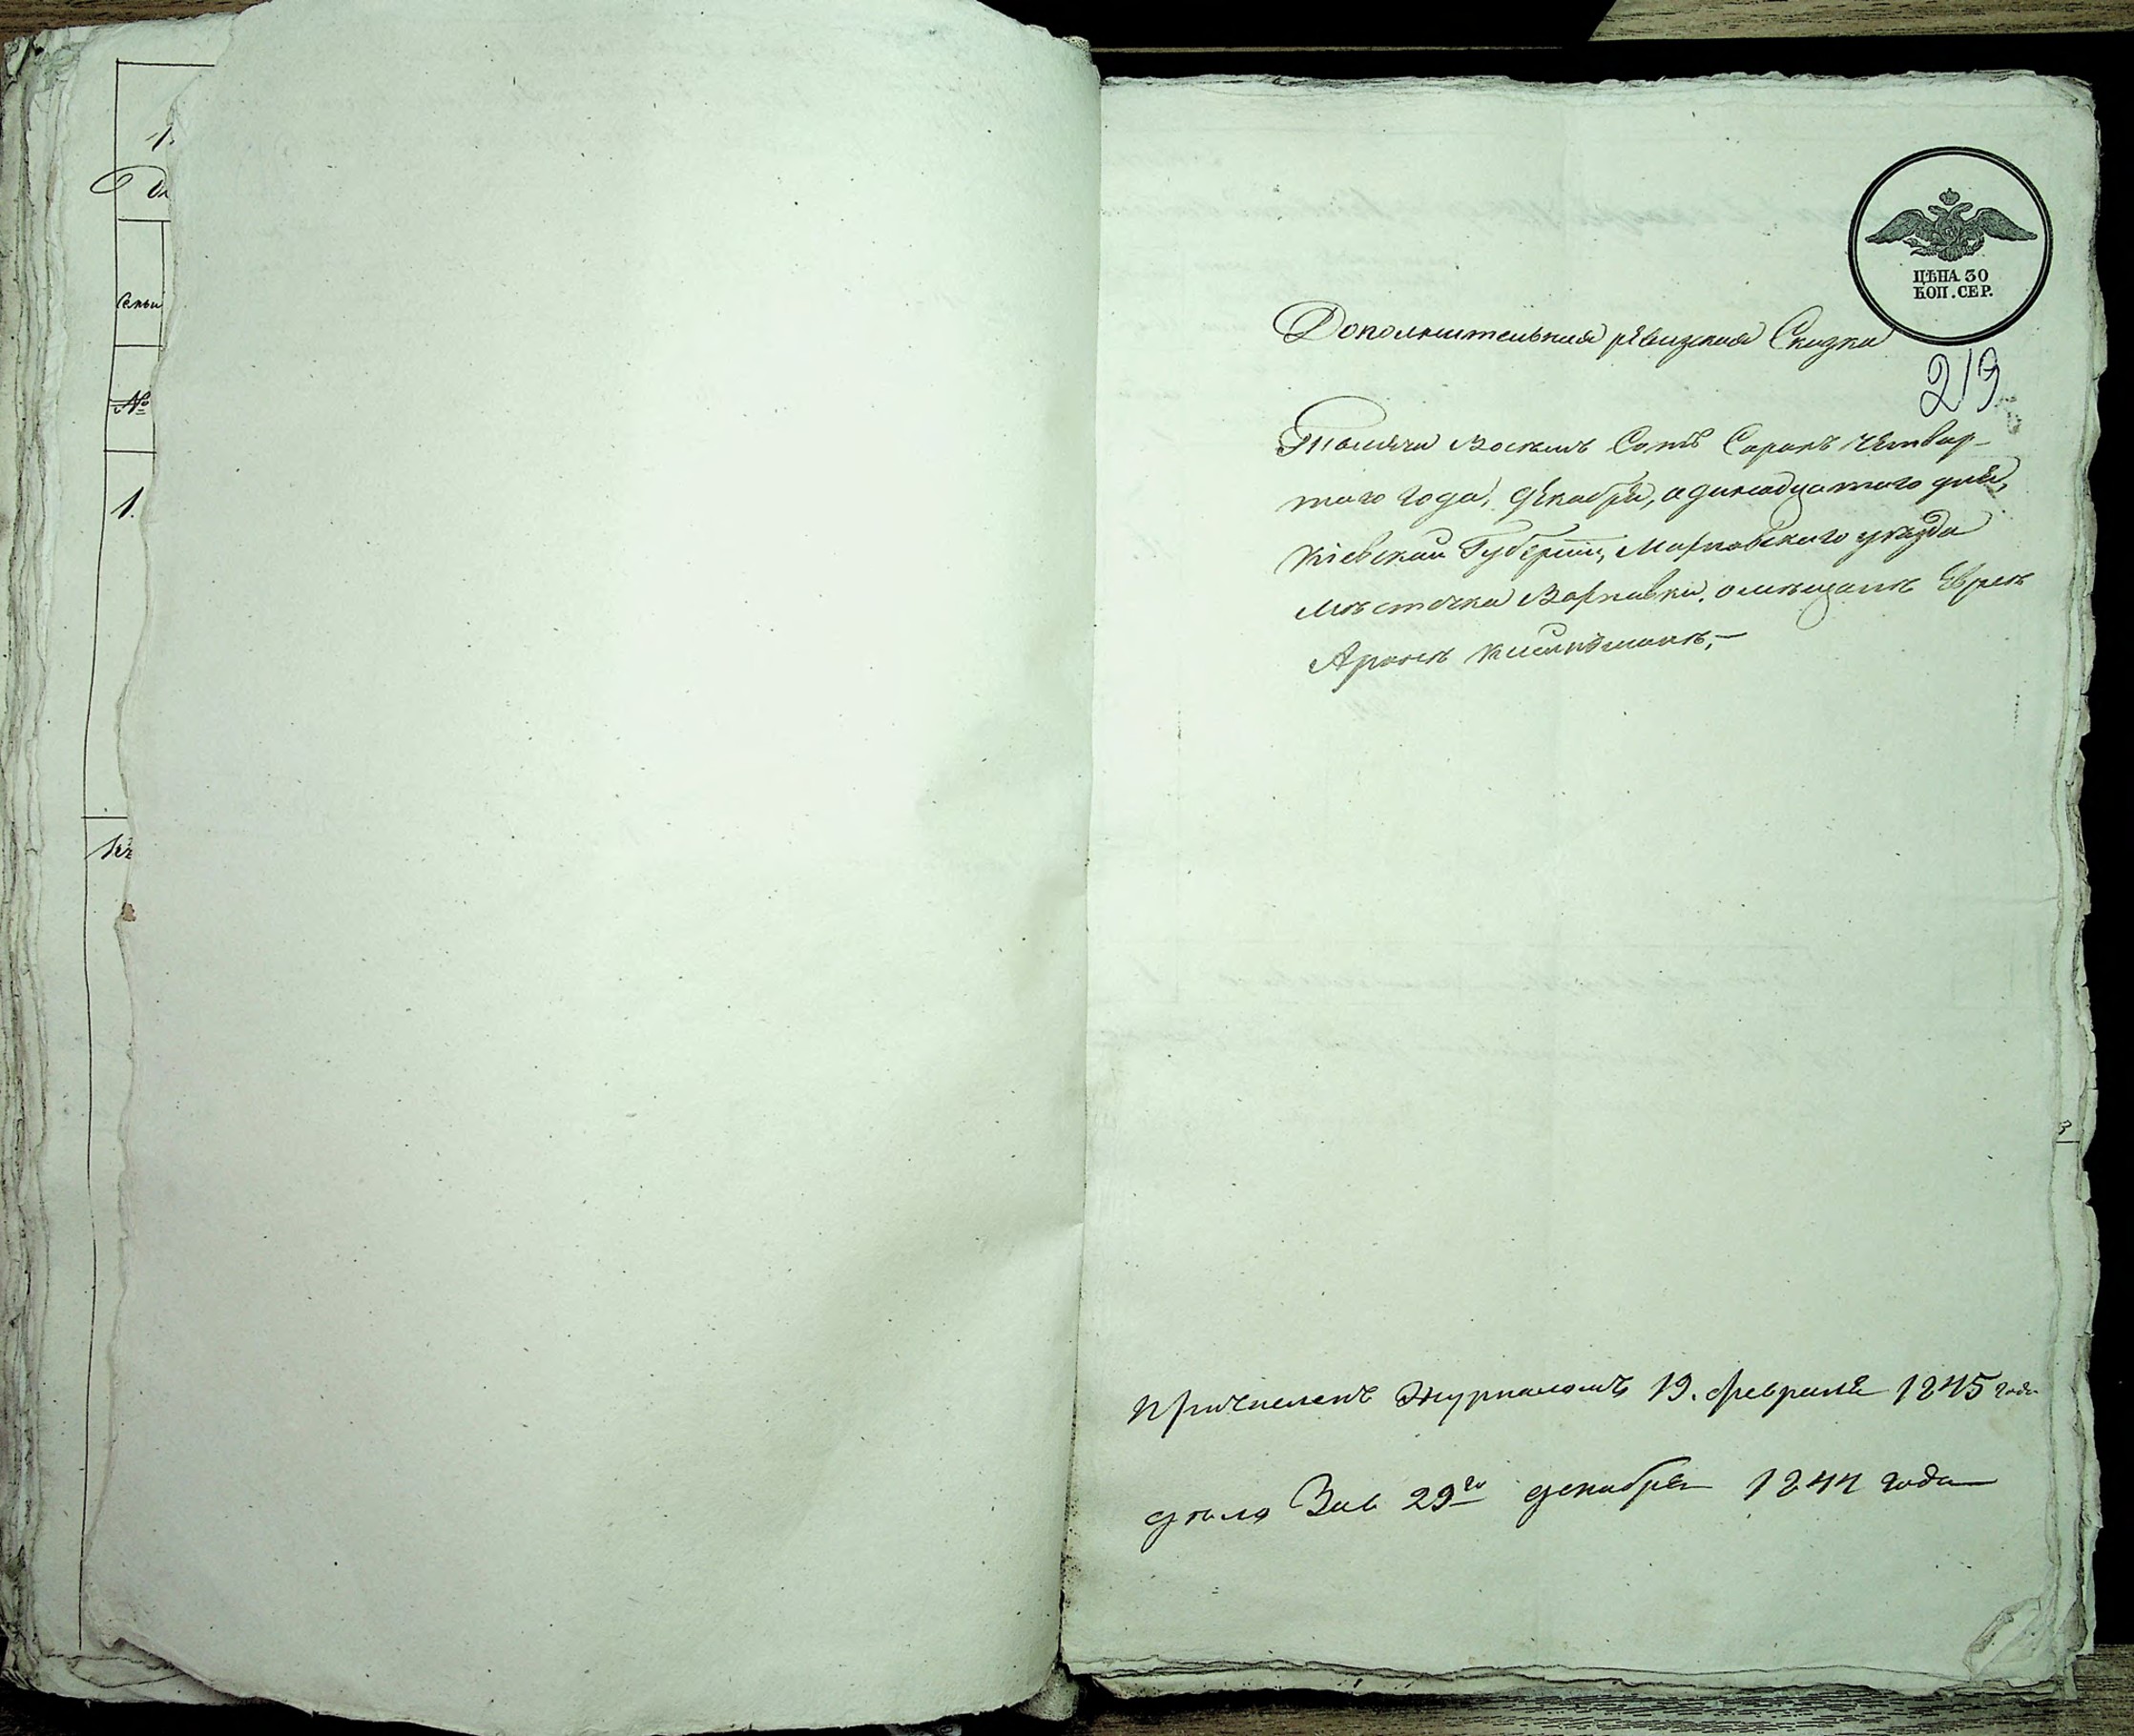 1.
Семьи
№
1.
ЦѢНА 30
КОП. СЕР.
Дополнительная ревизская Сказка
219
Тысяча Восемь Сотъ Сорокъ четвер-
таго года, декабря, одинадцатаго дня,
Кіевской Губерніи, уѣзда
Мѣстечка о мѣщанѣ Евреѣ
Аронѣ
Причисленъ Журналомъ 19. февраля 1845 года
дѣло 29го декабря 1844 года